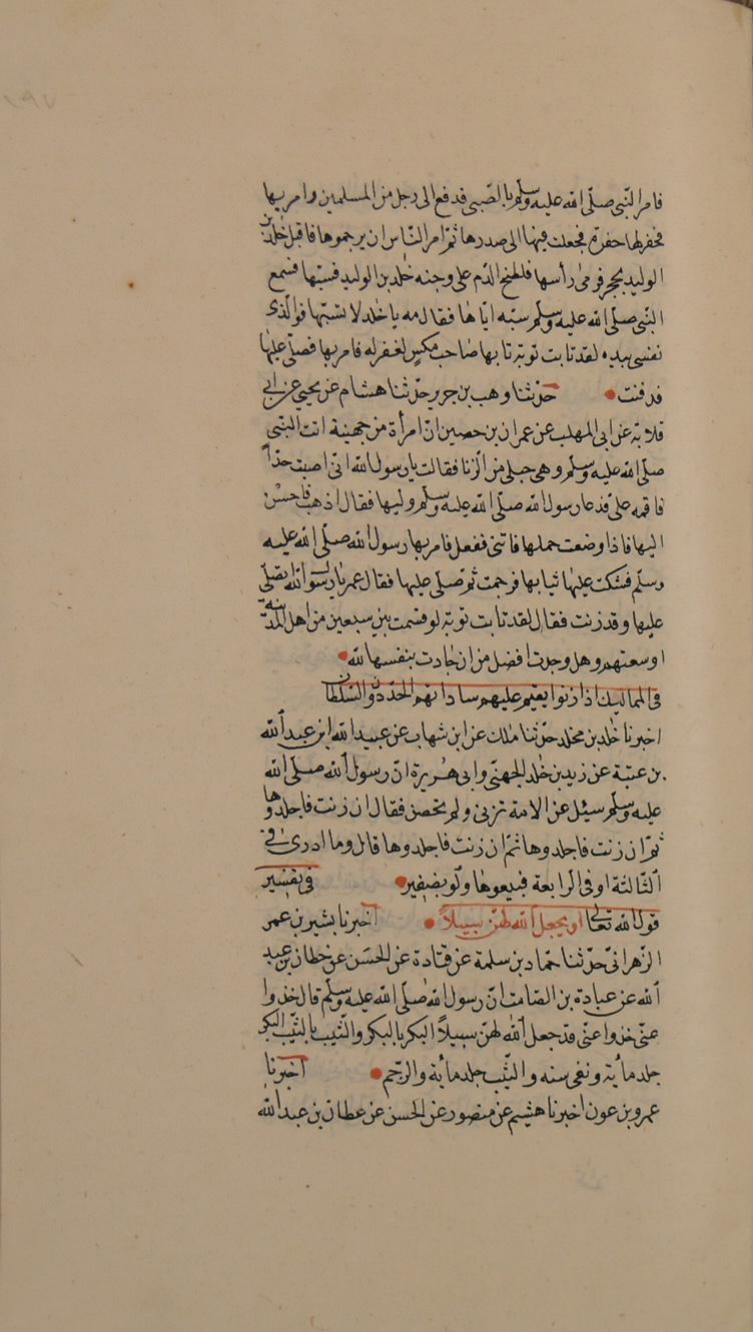 فامر النّبى صلّى الله عليه وسلّم بالصّبى فدفع الى رجل من المسلمين وامر بها
فحفر لها حفرة فجعلت فيها الى صدرها ثمّ امر النّاس ان يرجموها فاقبل خلد بن
الوليد بحجر فرمى رأسها فلطخ الدّم على وجنه خلد بن الوليد فسبّها فسمع
النّبى صلّى الله عليه وسلّم سبّه ايّاها فقال مه يا خلد لا تسبّها فوالّذى
نفسى بيده لقد تابت توبة تابها صاحب مكس لغفر له فامر بها فصلّى عليها
فدفنت • حدّثنا وهب بن جرير حدّثنا هشام عن يحيى عن ابى
قلابة عن ابى المهلب عن عمران بن حصين انّ امرأة من جهينة اتت النّبى
صلّى الله عليه وسلّم وهى حبلى من الزّنا فقالت يا رسول الله انّى اصبت حدّاً
فاقمه علىّ فدعا رسول الله صلّى الله عليه وسلّم وليها فقال اذهب فاحسن
اليها فاذا وضعت حملها فاتنى ففعل فامر بها رسول الله صلّى الله عليه
وسلّم فشكت عليها ثيابها فرجمت ثمّ صلّى عليها فقال عمر يا رسول الله اتصلّى
عليها وقد زنت فقال لقد تابت توبة لو قسمت بين سبعين من اهل المدينة
اوسعتهم وهل وجدت افضل من ان جادت بنفسها لله •
فى المماليك اذا زنوا يقيم عليهم ساداتهم الحدّ دون السّلطان
اخبرنا خلد بن مخلد حدّثنا ملك عن ابن شهاب عن عبيد الله ابن عبد الله
بن عتبة عن زيد بن خلد الجهنّى وابى هريرة انّ رسول الله صلّى الله
عليه وسلّم سئل عن الامة تزنى ولم تحصن فقال ان زنت فاجلدوها
ثمّ ان زنت فاجلدوها ثمّ ان زنت فاجلدوها قال وما ادرى فى
الثّالثة او فى الرّابعة فبيعوها ولو بضفير • فى تفسير
قول الله تعالى او يجعل الله لهنّ سبيلاً • اخبرنا بشير بن عمر
الزّهرانىّ حدّثنا حمّاد بن سلمة عن قتادة عن الحسن عن حطان بن عبد
الله عن عبادة بن الصّامت انّ رسول الله صلّى الله عليه وسلّم قال خذوا
عنّى خذوا عنّى قد جعل الله لهنّ سبيلاً البكر بالبكر والثّيب بالثّيب البكر
جلد مائة ونفى سنه والثّيب جلد مائة والرّجم • اخبرنا
عمرو بن عون اخبرنا هشيم عن منصور عن الحسن عن حطان بن عبد الله